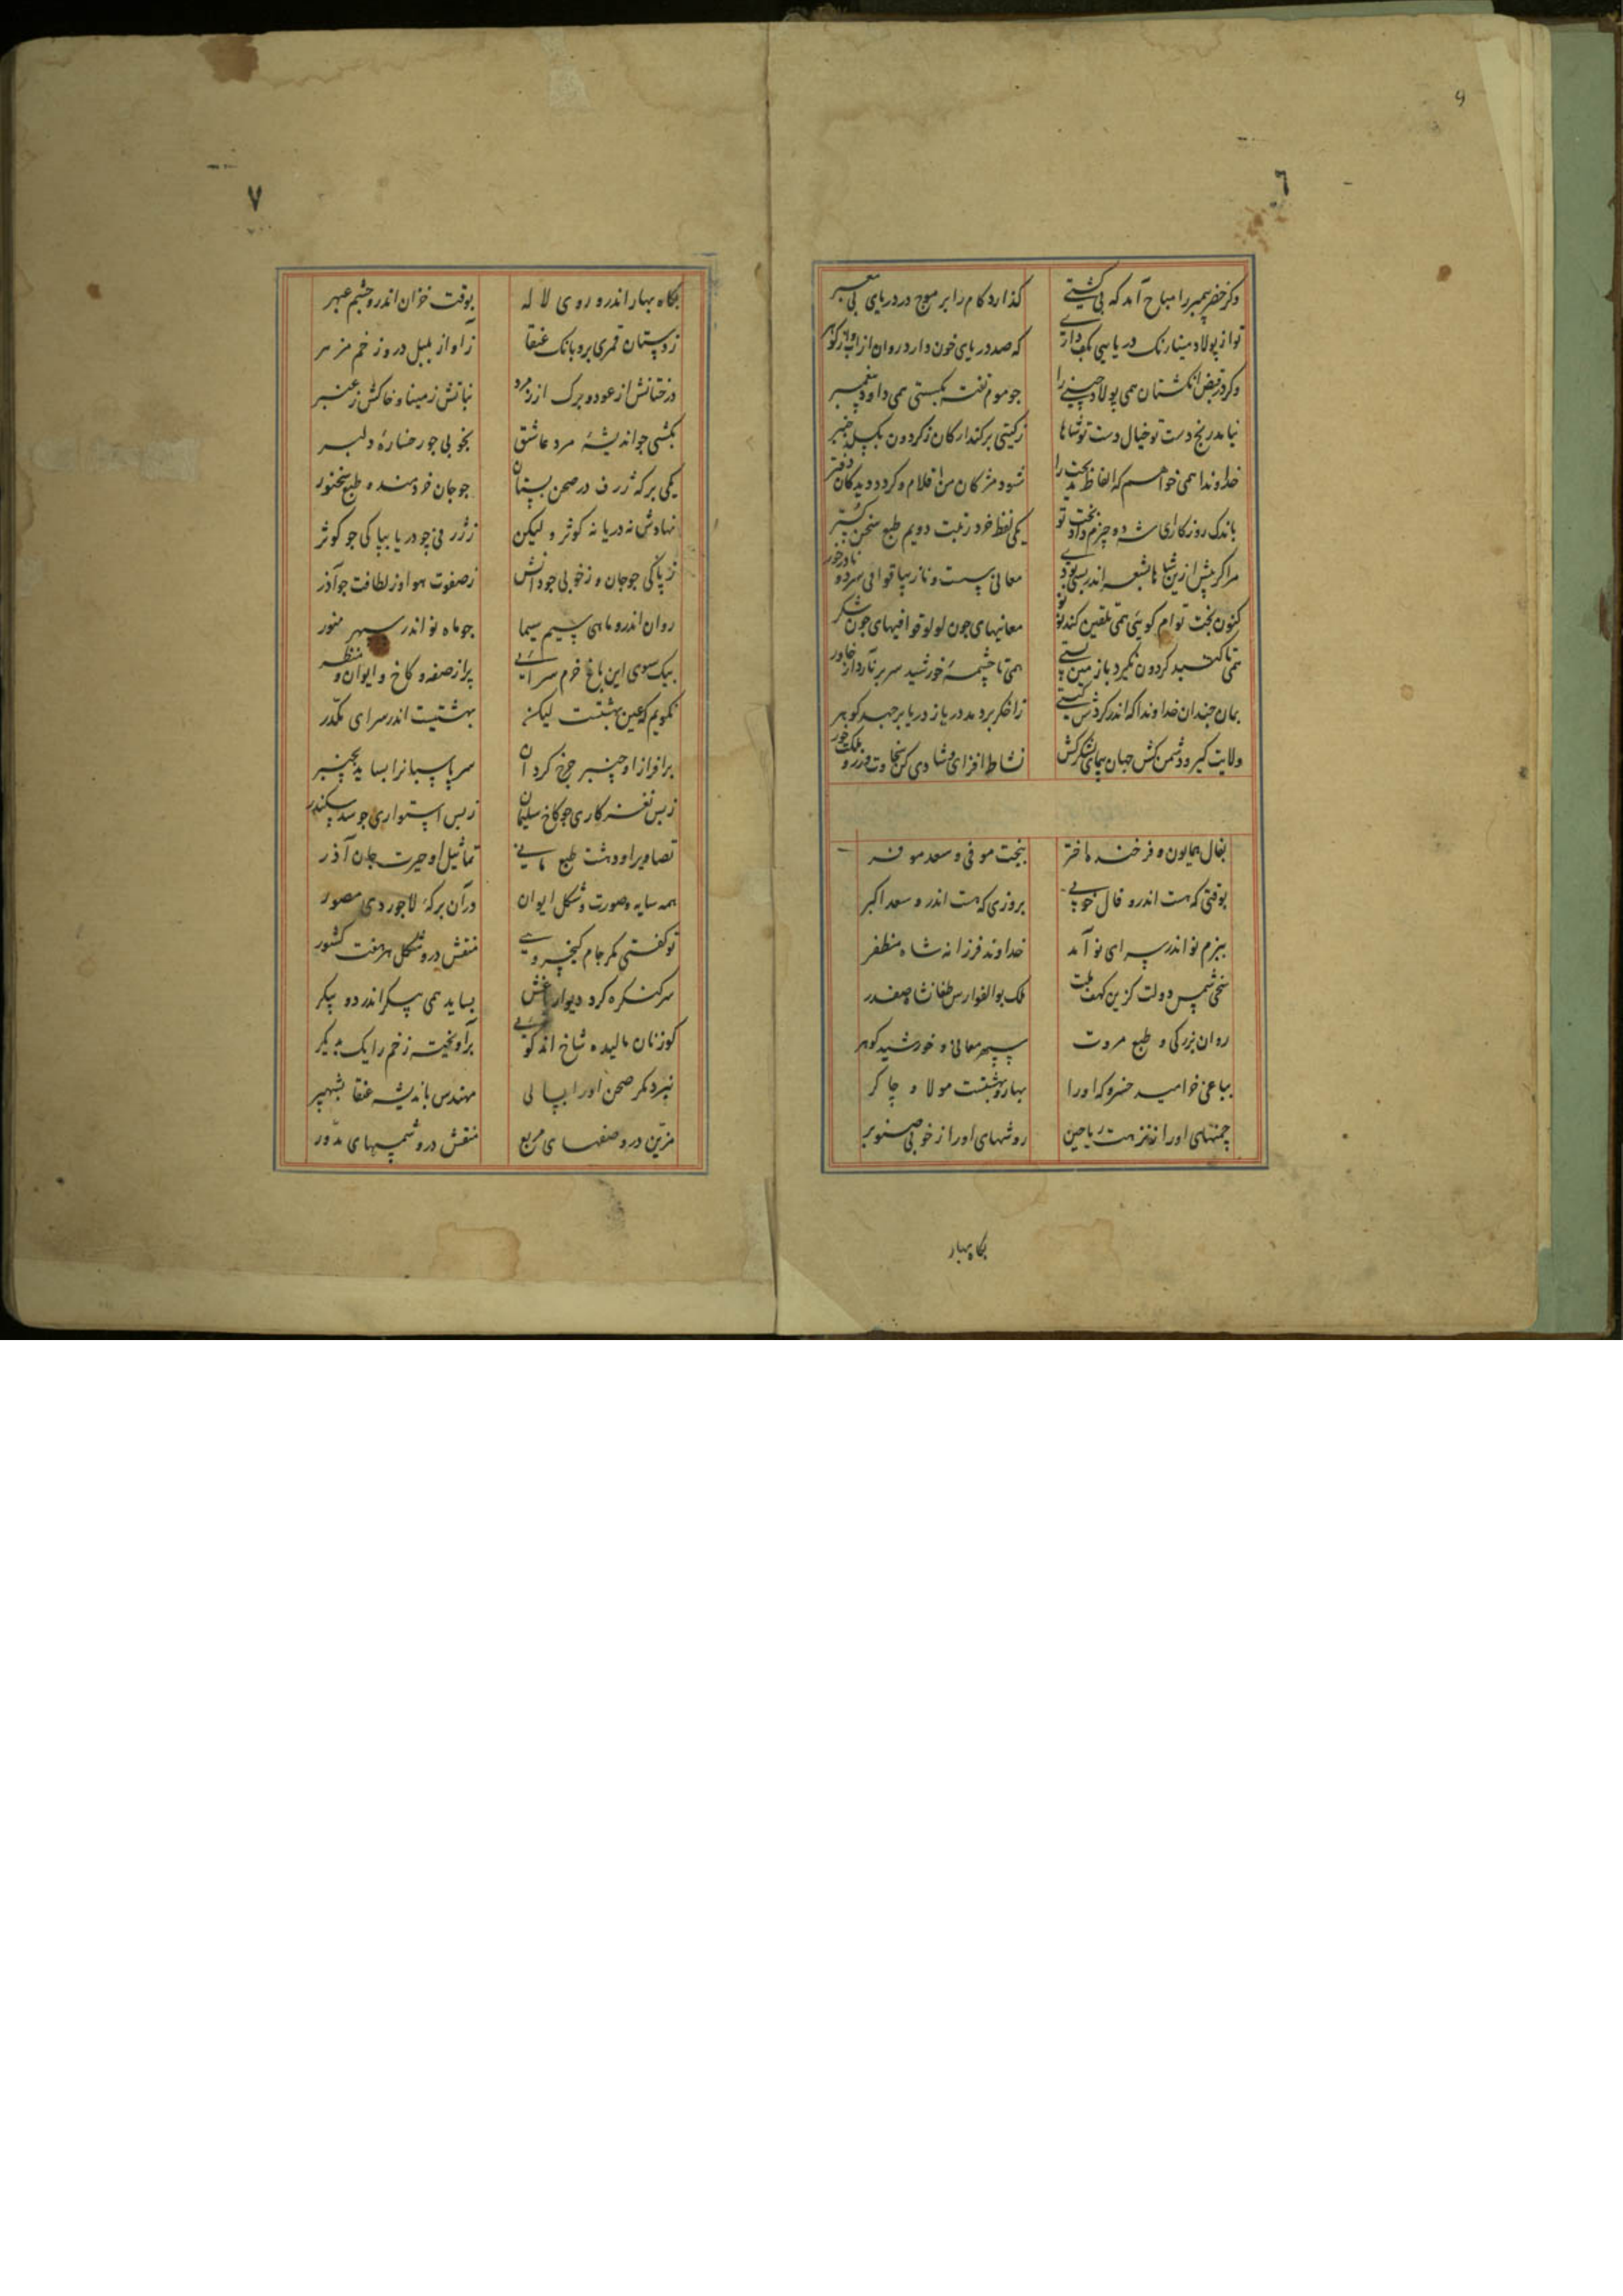 ٩
٦
وکر خضر پیمبر را مباح آمد که بی کشتی کذارد کام را بر موج در دریای بی معبر
تو از پولاد مینا رنک دریایی بکف داری که صد دریای خون دارد روان از آب وز کوهر
وکر در قبض انکشتان همی پولاد چینی را جو موم تفت بکسستی همی داود پیغمبر
نیابد رنج دست تو خیال دست تو شاها ز کیتی برکند ارکان ز کردون بکسلد جنبر
خداوندا همی خواهم که الفاظ مدیحت را شود مژکان من اقلام و کردد دیدکان دفتر
باندک روزکاری شه دو چیزم داد بخت تو یکی لفظ خرد زینت دویم طبع سخن کستر
مرا کر پیش ازین شاها بشعر اندر بدی معانی سست و نازیبا قوافی سرد و نادرخور
کنون بخت توام کویی همی تلقین کند نونو معانیهای جون لولو قوافیهای جون شکر
همی تا کنبد کردون نکیرد باز مین پستی همی تا چشمهٔ خورشید سر برنارد از خاور
بمان چندان خداوندا که اندر کردش کیتی ز اخکر بردمد دریا ز دریا برجهد کوهر
ولایت کیر و دشمن کش جهان پیمای لشکرکش نشاط افزای و شادی کن سخاوت ورز و ملکت خور
بفال همایون و فرخنده اختر ببخت موفی و سعد موفر
بوقتی که هست اندرو فال خوبی بروزی که هست اندرو سعد اکبر
ببزم نو اندر سرای نو آمد خداوند فرزانه شاه مظفر
سخی شمس دولت کزین کهف ملت ملک بوالفوارس طغانشاه صفدر
روان بزرکی و طبع مروت سپهر معالی و خورشید کوهر
بباغی خرامید خسرو که او را بهار و بهشتست مولا و چاکر
چمنهای او را ز نزهت ریاحین روشهای او را ز خوبی صنوبر
بکاه بهار
٧
بکاه بهار اندرو روی لاله بوقت خزان اندرو چشم عبهر
ز دستان قمری برو بانک عنقا ز آواز بلبل درو زخم مزهر
درختانش از عود و برک از زمرد نباتش ز مینا و خاکش ز عنبر
بکشی جو اندیشهٔ مرد عاشق بخوبی جو رخسارهٔ دلبر
یکی برکهٔ ژرف در صحن بستان جو جان خردمند و طبع سخنور
نهادش نه دریا نه کوثر و لیکن بژرفی چو دریا بپاکی جو کوثر
ز پاکی جو جان و ز خوبی جو دانش ز صفوت هوا وز لطافت جو آذر
روان اندرو ماهی سیم سیما جو ماه نو اندر سپهر منور
بیک سوی این باغ خرم سرایی پر از صفه و کاخ و ایوان و منظر
نکویم که عین بهشتست لیکن بهشتیست اندر سرای مکدر
بر افراز او چنبر چرخ کردان سر پاسبانرا بساید بچنبر
ز بس نغز کاری جو کاخ سلیمان ز بس استواری جو سد سکندر
تصاویر او دهشت طبع مانی تماثیل او حیرت جان آذر
همه سایه و صورت و شکل ایوان در آن برکهٔ لاجوردی مصور
تو کفتی مکر جام کیخسروی منقش درو شکل هر هفت کشور
سر کنکره کرد دیوار باغش بساید همی پیکر اندر دو پیکر
کوزنان بالیده شاخ اند کویی برآویخته زخم را یک بدیکر
نپرد مکر صحن او را بسالی مهندس باندیشه عنقا بشهپر
مزین درو صفهای مربع منقش درو شمسهای مدور